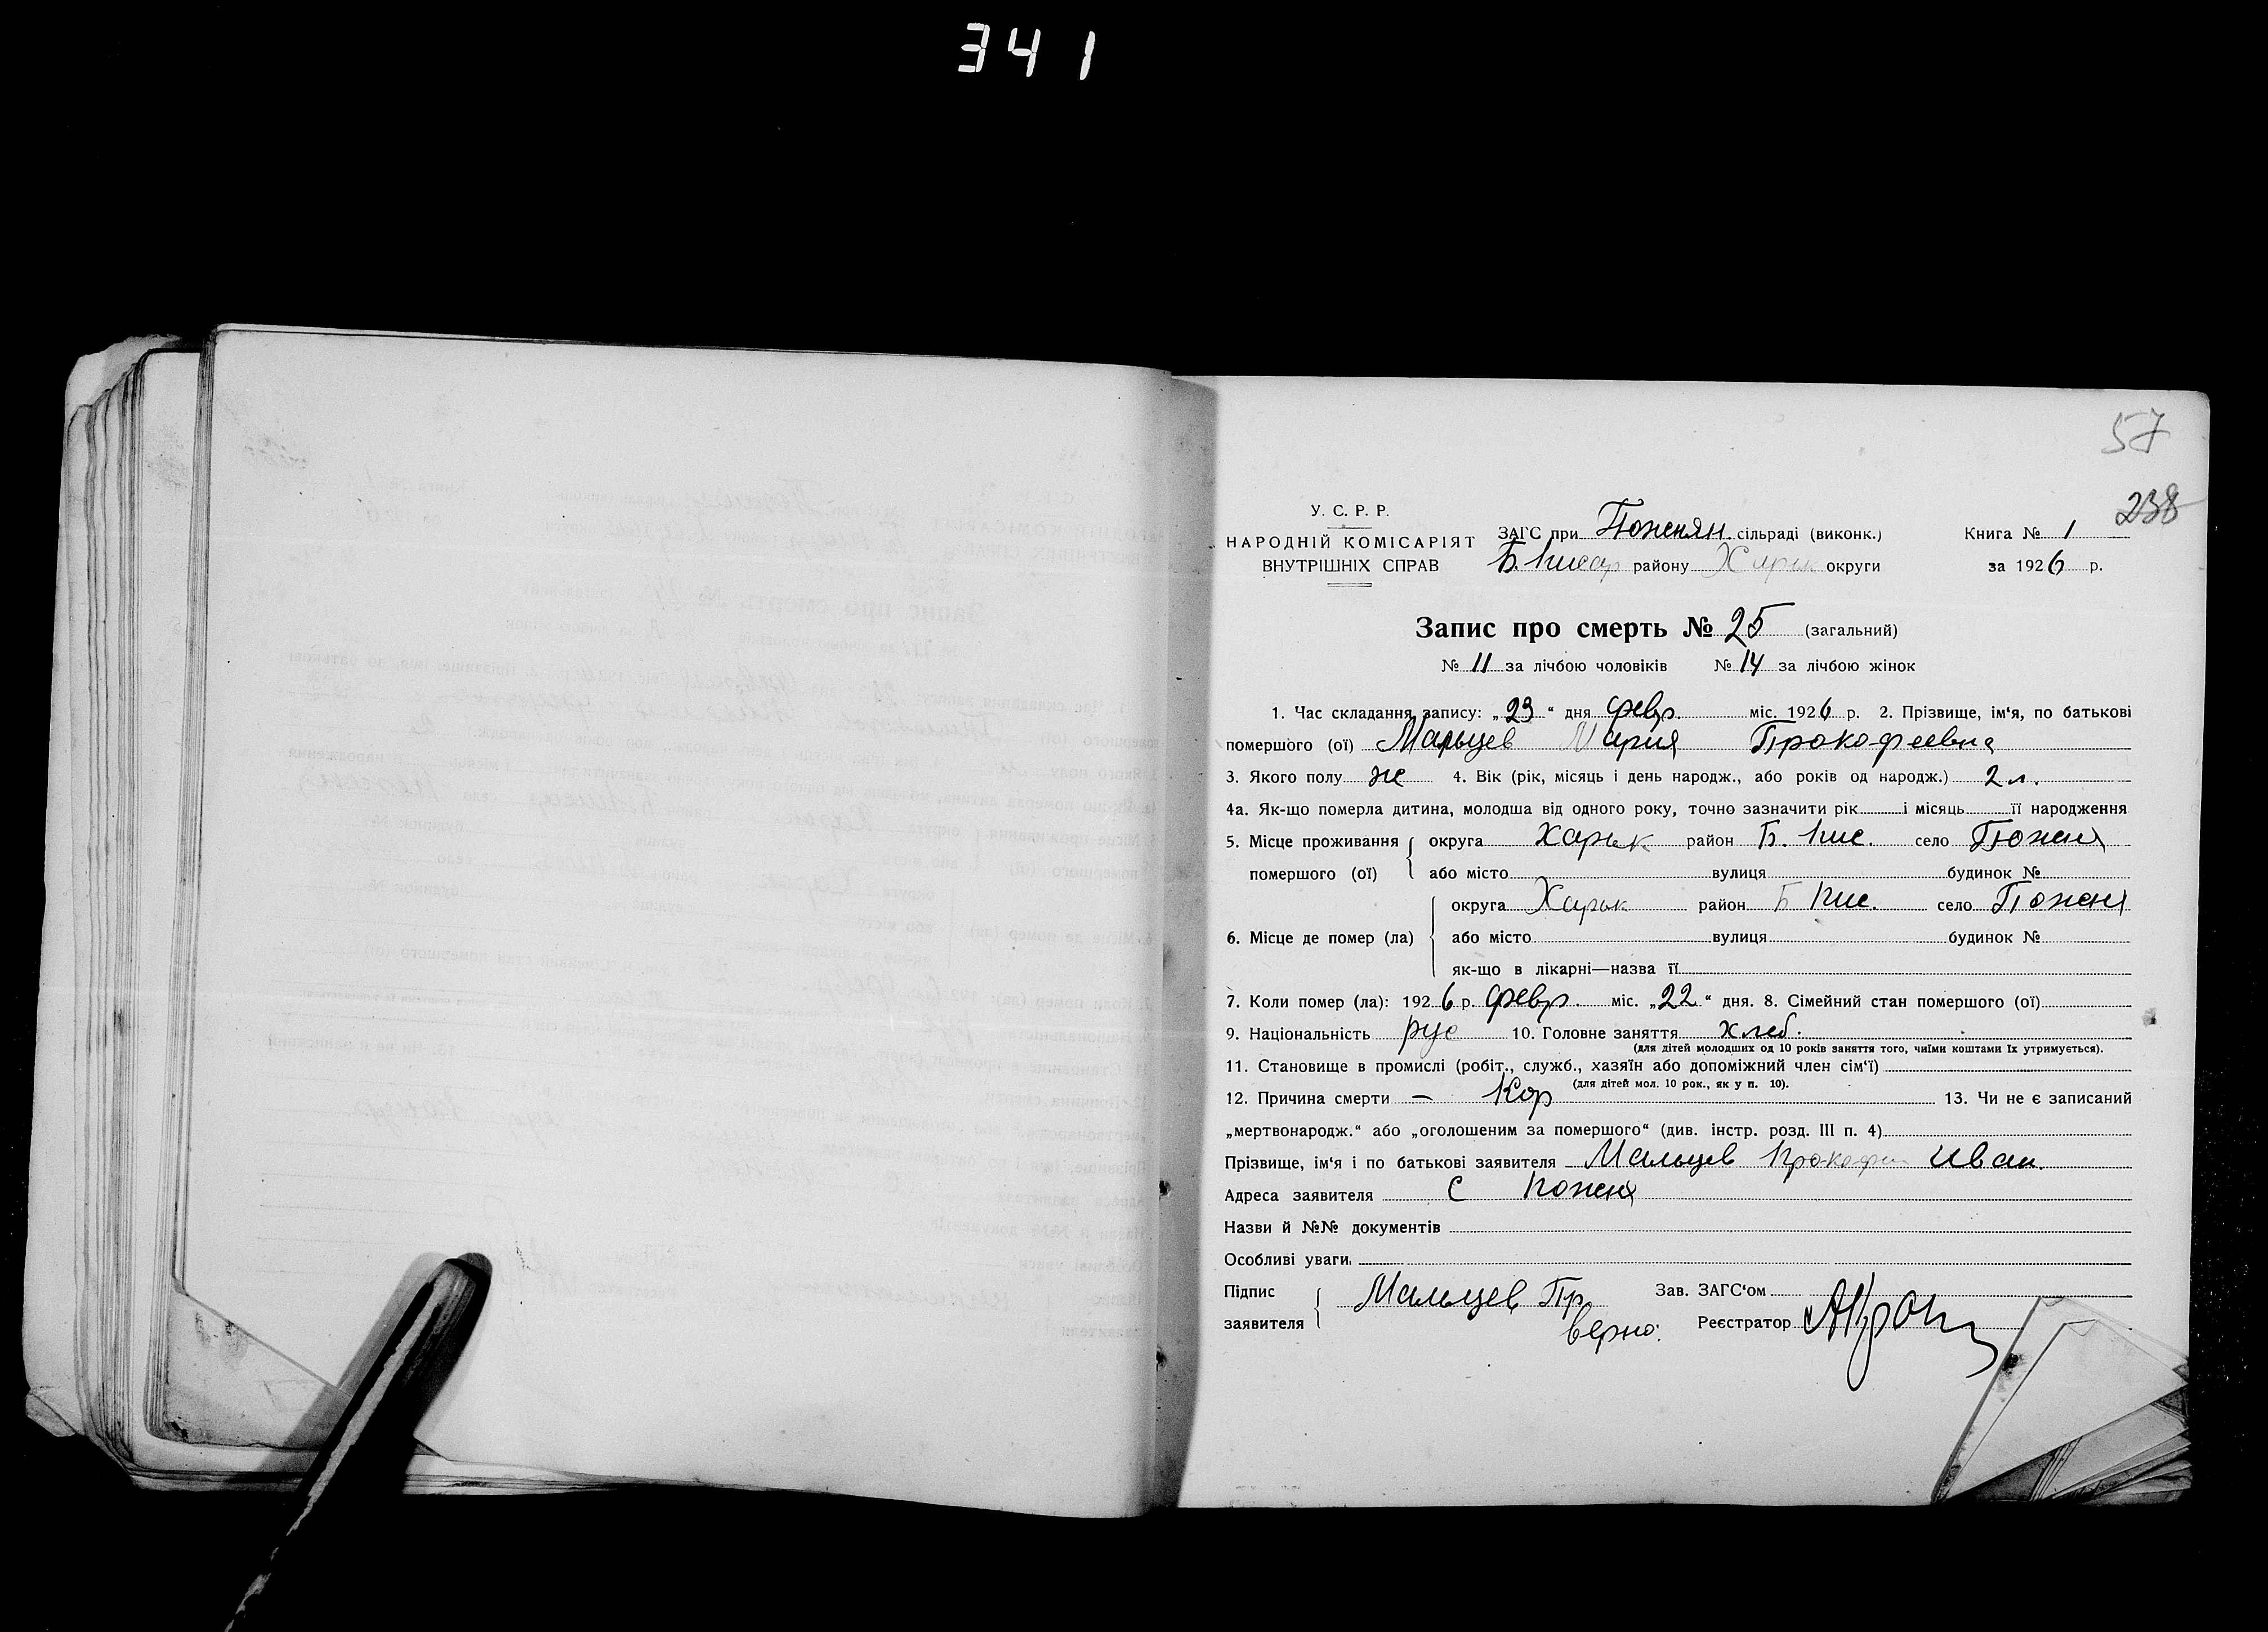 341
57
238
У. С. Р. Р.
НАРОДНІЙ КОМІСАРІЯТ
ВНУТРІШНІХ СПРАВ
ЗАГС при Поженян. сільраді (виконк.)
Б. району Харьк округи
Книга № 1
за 1926 р.
Запис про смерть № 25 (загальний)
№ 11 за лічбою чоловіків № 14 за лічбою жінок
1. Час складання запису: „23“ дня февр. міс. 1926 р. 2. Прізвище, ім'я, по батькові
помершого (ої) Мальцев Мария Прокофеевна
3. Якого полу же 4. Вік (рік, місяць і день народж., або років од народж.) 2 л.
4а. Як-що померла дитина, молодша від одного року, точно зазначити рік і місяць її народження
5. Місце проживання помершого (ої) округа Харьк район Б. Кис. село Поженя
або місто вулиця будинок №
6. Місце де помер (ла) округа Харьк район Б Кис. село Поженя
або місто вулиця будинок №
як-що в лікарні—назва її
7. Коли помер (ла): 1926 р. февр. міс. „22“ дня. 8. Сімейний стан помершого (ої)
9. Національність рус 10. Головне заняття хлеб.
(для дітей молодших од 10 років заняття того, чиїми коштами їх утримується).
11. Становище в промислі (робіт., служб., хазяїн або допоміжний член сім'ї)
(для дітей мол. 10 рок., як у п. 10).
12. Причина смерти — Кор 13. Чи не є записаний
„мертвонародж.“ або „оголошеним за помершого“ (див. інстр. розд. III п. 4)
Прізвище, ім'я і по батькові заявителя Мальцев Прокофи Иван.
Адреса заявителя с Поженя
Назви й №№ документів
Особливі уваги
Підпис заявителя Мальцев Пр Зав. ЗАГС'ом
верно: Реєстратор